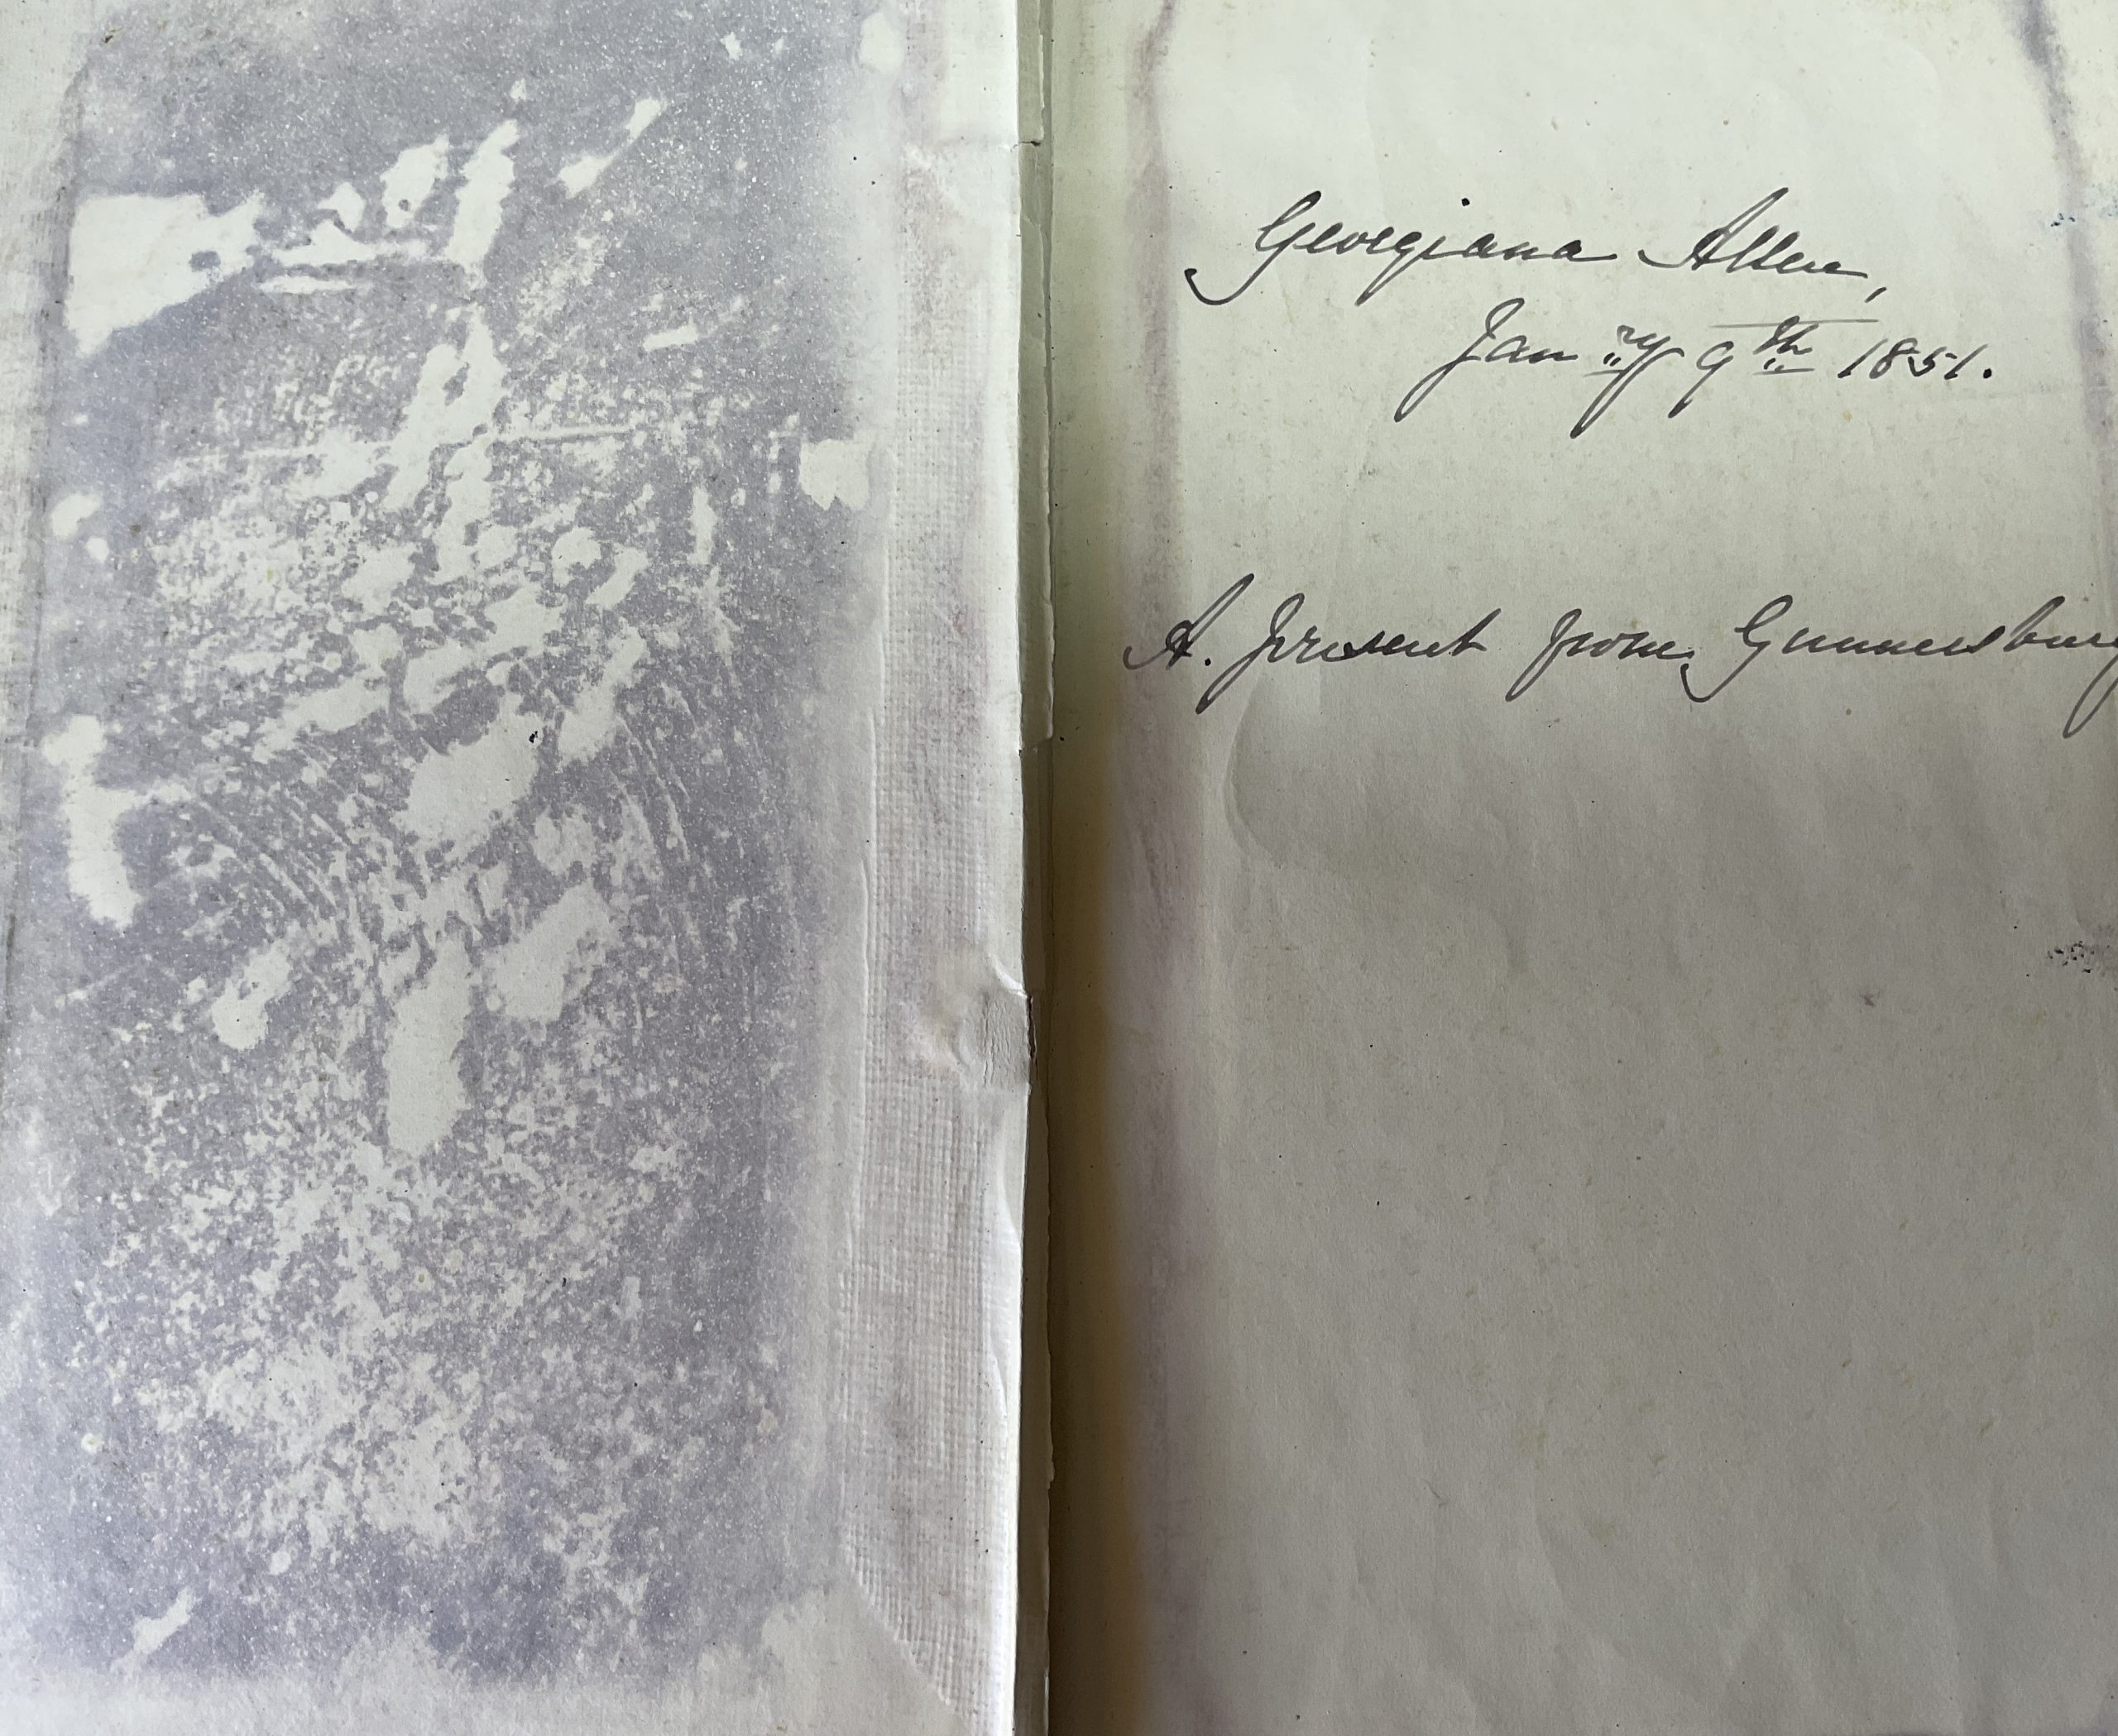 Georgiana Allen,
Jan ry 9th 1851.
A. present from Gunnersbury